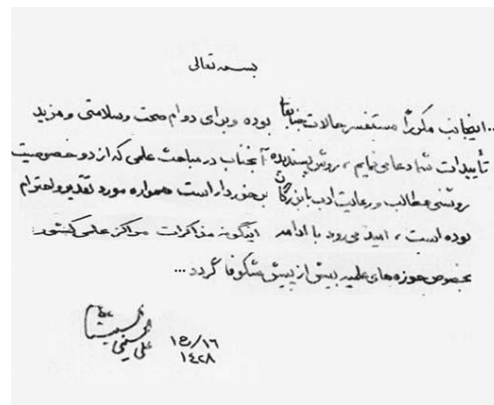 بسمه تعالی
...اینجانب مکرراً مستفسر حالات جنابعالی بوده و برای دوام صحت و سلامتی و مزید
تأییدات شما دعا می نمایم، روش پسندیده آنجناب در مباحث علمی که از دو خصوصیت
روشنی مطالب و رعایت ادب با بزرگان برخوردار است همواره مورد تقدیر و احترام
بوده است، امید می رود با ادامه اینگونه مذاکرات مراکز علمی کشور
بخصوص حوزه های علمیه بیش از پیش شکوفا گردد...
علی الحسینی السیستانی
۱۶/ع۱
۱۴۲۸